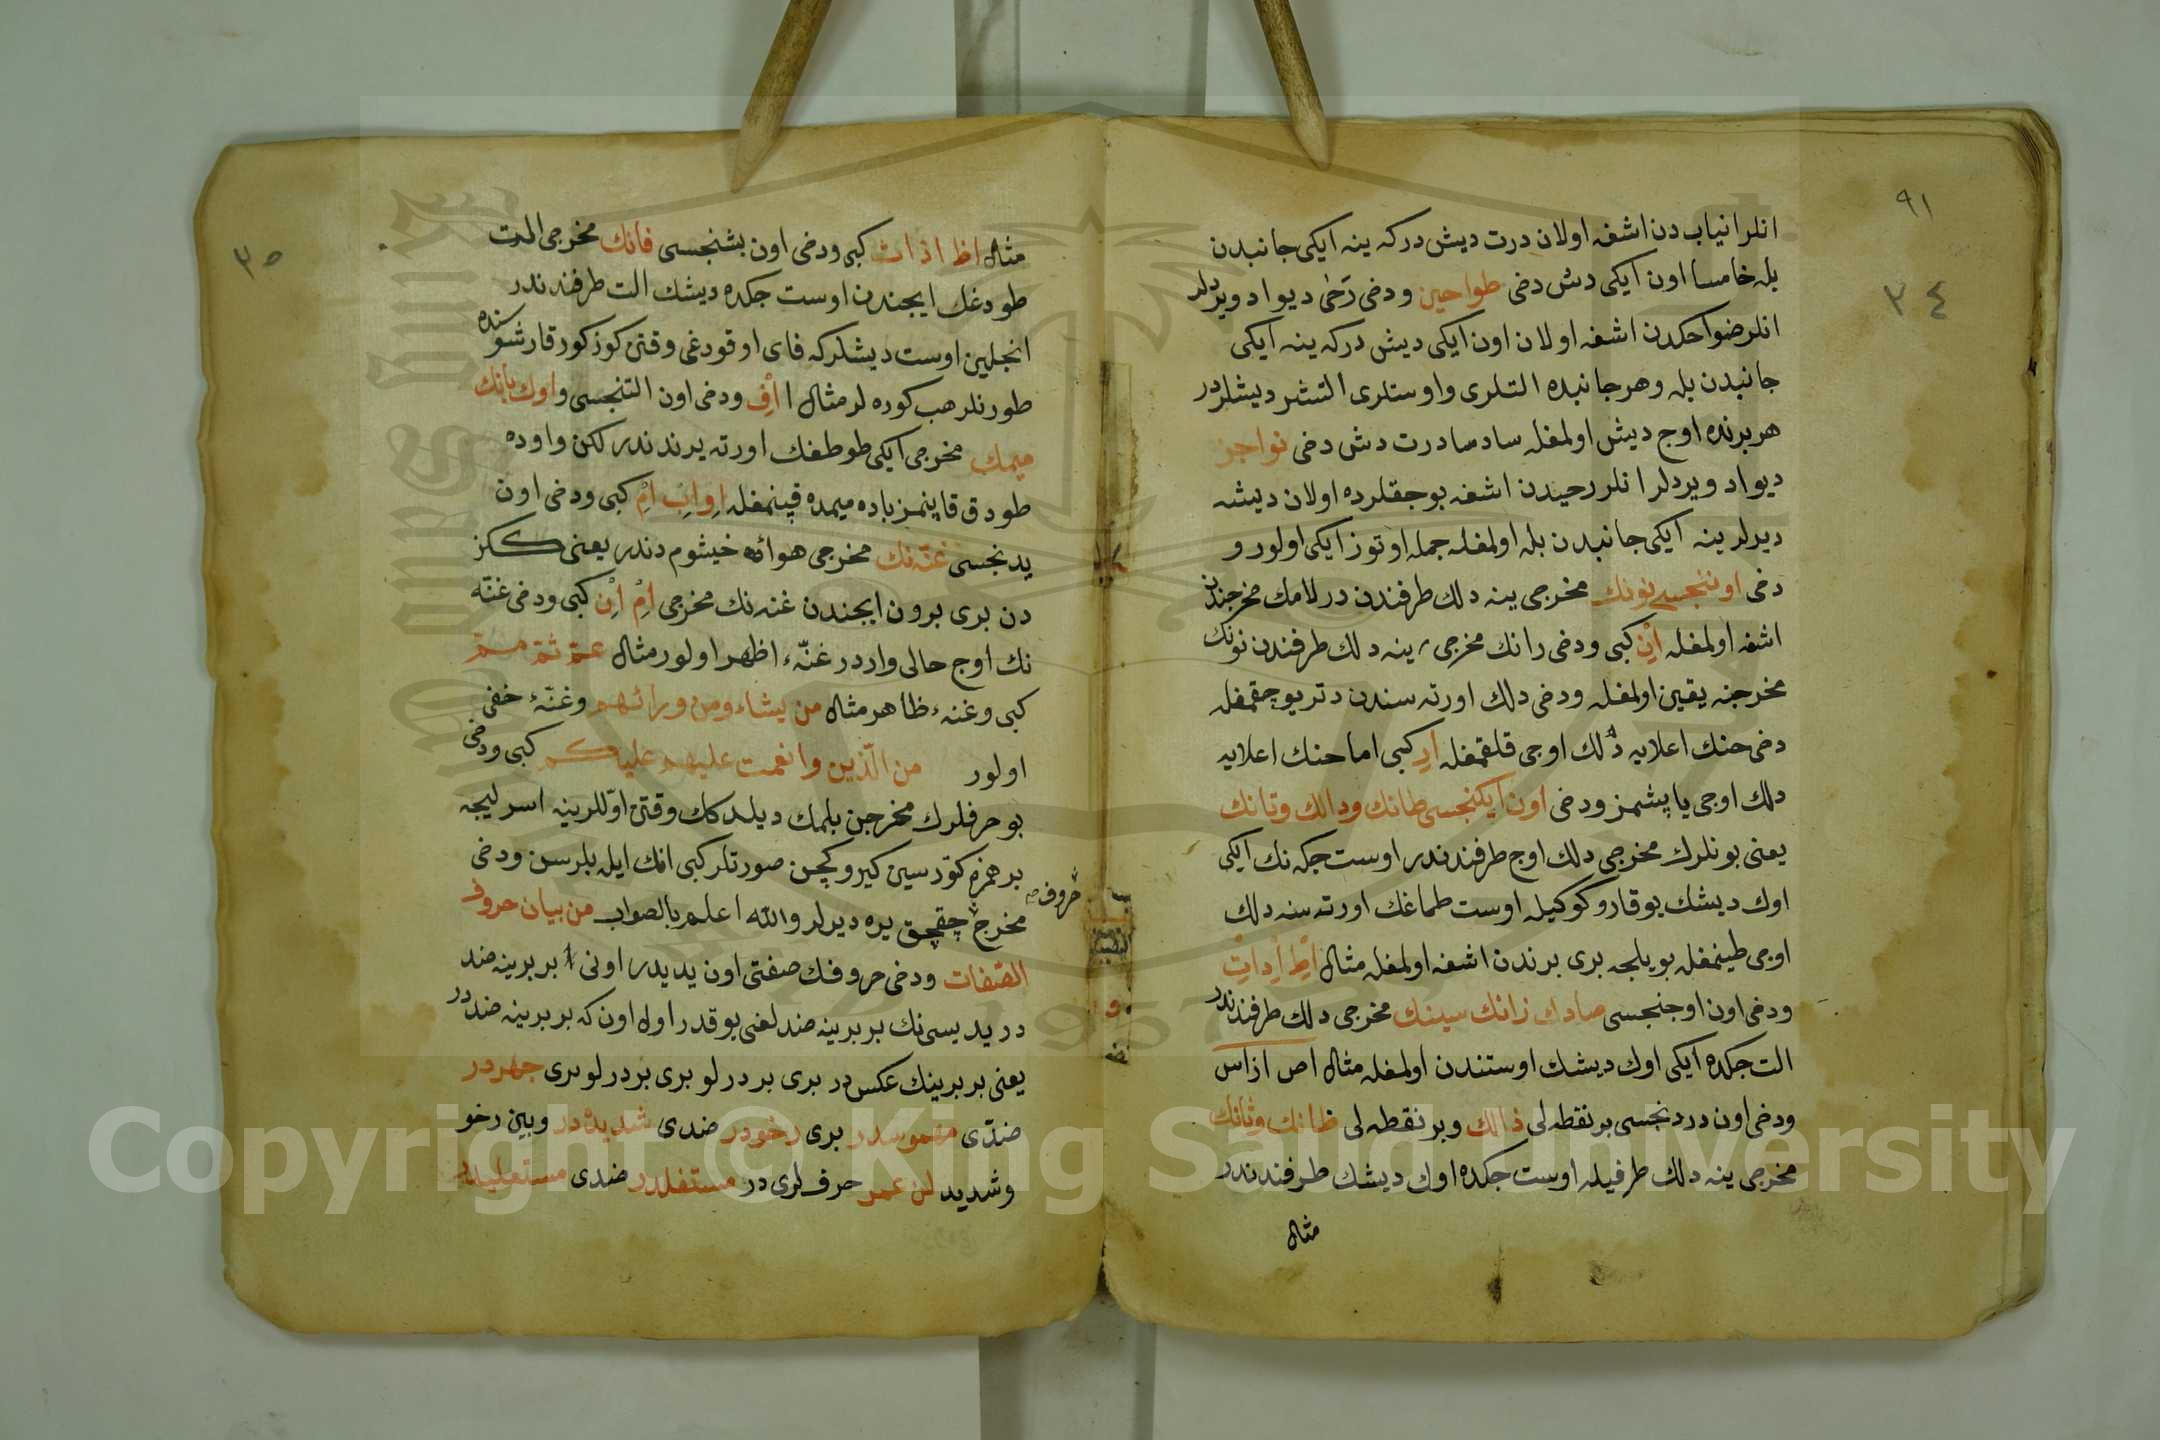 ٩١
٣٤
انلر انياب دن اشغه اولان درت ديش دركه ينه ايكى جانبدن
بله خامسا اون ايكى دش دخى طواحين ودخى رَحٰى ديو اد ويردلر
انلر ضواحكدن اشغه اولان اون ايكى ديش دركه ينه ايكى
جانبدن بله وهر جانبده التلرى واوستلرى التشر ديشلردر
هر برنده اوج ديش اولمغله سادسا درت دش دخى نواجز
ديو اد ويردلر انلر رحيدن اشغه بوجقلرده اولان ديشه
ديرلر ينه ايكى جانبدن بله اولمغله جمله اوتوز ايكى اولور و
دخى اوننجسى نونك مخرجى ينه دلك طرفندن در لامك مخرجندن
اشغه اولمغله اِنْ كبى ودخى رانك مخرجى ينه دلك طرفندن نونك
مخرجنه يقين اولمغله ودخى دلك اورته سندن دتريو چقمغله
دخى حنك اعلايه دلك اوجى قلقمغله اِرْ كبى اما حنك اعلايه
دلك اوجى ياپشمز ودخى اون ايكنجسى طانك ودالك وتانك
يعنى بونلرك مخرجى دلك اوج طرفندندر اوست جكه نك ايكى
اوك ديشك يوقارو كوكيله اوست طماغك اورته سنه دلك
اوجى طينمغله بويلجه برى برندن اشغه اولمغله مثال اِطْ اِدْ اِتْ
ودخى اون اوجنجسى صادك زانك سينك مخرجى دلك طرفندندر
الت جكده ايكى اوك ديشك اوستندن اولمغله مثال اص از اس
ودخى اون دردنجسى بر نقطه لى ذالك وبر نقطه لى ظانك وثانك
مخرجى ينه دلك طرفيله اوست جكده اوك ديشك طرفندندر
مثال
٣٥
مثال اظ اذ اث كبى ودخى اون بشنجسى فانك مخرجى الت
طودغك ايجندن اوست جكده ديشك الت طرفندندر
انجلين اوست ديشلركه فاى اوقودغى وقتى كوز كور قارشوسنده
طورنلر هب كوره لر مثال ا اِفْ ودخى اون التنجسى واوك بانك
ميمك مخرجى ايكى طوطغك اورته يرندندر لكن واوده
طودق قاپنمز باده ميمده قپنمغله اِو اِبْ اِمْ كبى ودخى اون
يدنجسى غنّه نك مخرجى هوائه خيشوم دندر يعنى ككز
دن برى برون ايجندن غنه نك مخرجى اِمْ اِنْ كبى ودخى غنّه
نك اوج حالى واردر غنّهء اظهر اولور مثال عمّ ثمّ ممّ
كبى وغنهء ظاهر مثال من يشاء ومن ورائهم وغنّهء خفى
اولور من الّذين وانعمت عليهم عليكم كبى ودخى
بو حرفلرك مخرجن بلمك ديلدكك وقتى اوّللرينه اسرليجه
بر همزه كوّر سين كيرو كچن صورتلر كبى انك ايله بلرسن ودخى
مخرج چقچق يره ديرلر والله اعلم بالصواب من بيان حروف
حروف صح
الصّفات ودخى حروفك صفتى اون يديدر اونى بر برينه ضد
در يديسى نك بر برينه ضد لغى يوقدر اول اون كه بر برينه ضددر
يعنى بر برينك عكس در برى بر درلو برى بر درلو برى جهردر
ضدّى مهموسدر برى رخودر ضدى شديده در وبين رخو
وشديد لن عمر حرفلرى در مستفلدر ضدى مستعليدر
Copyright © King Saud University
1957